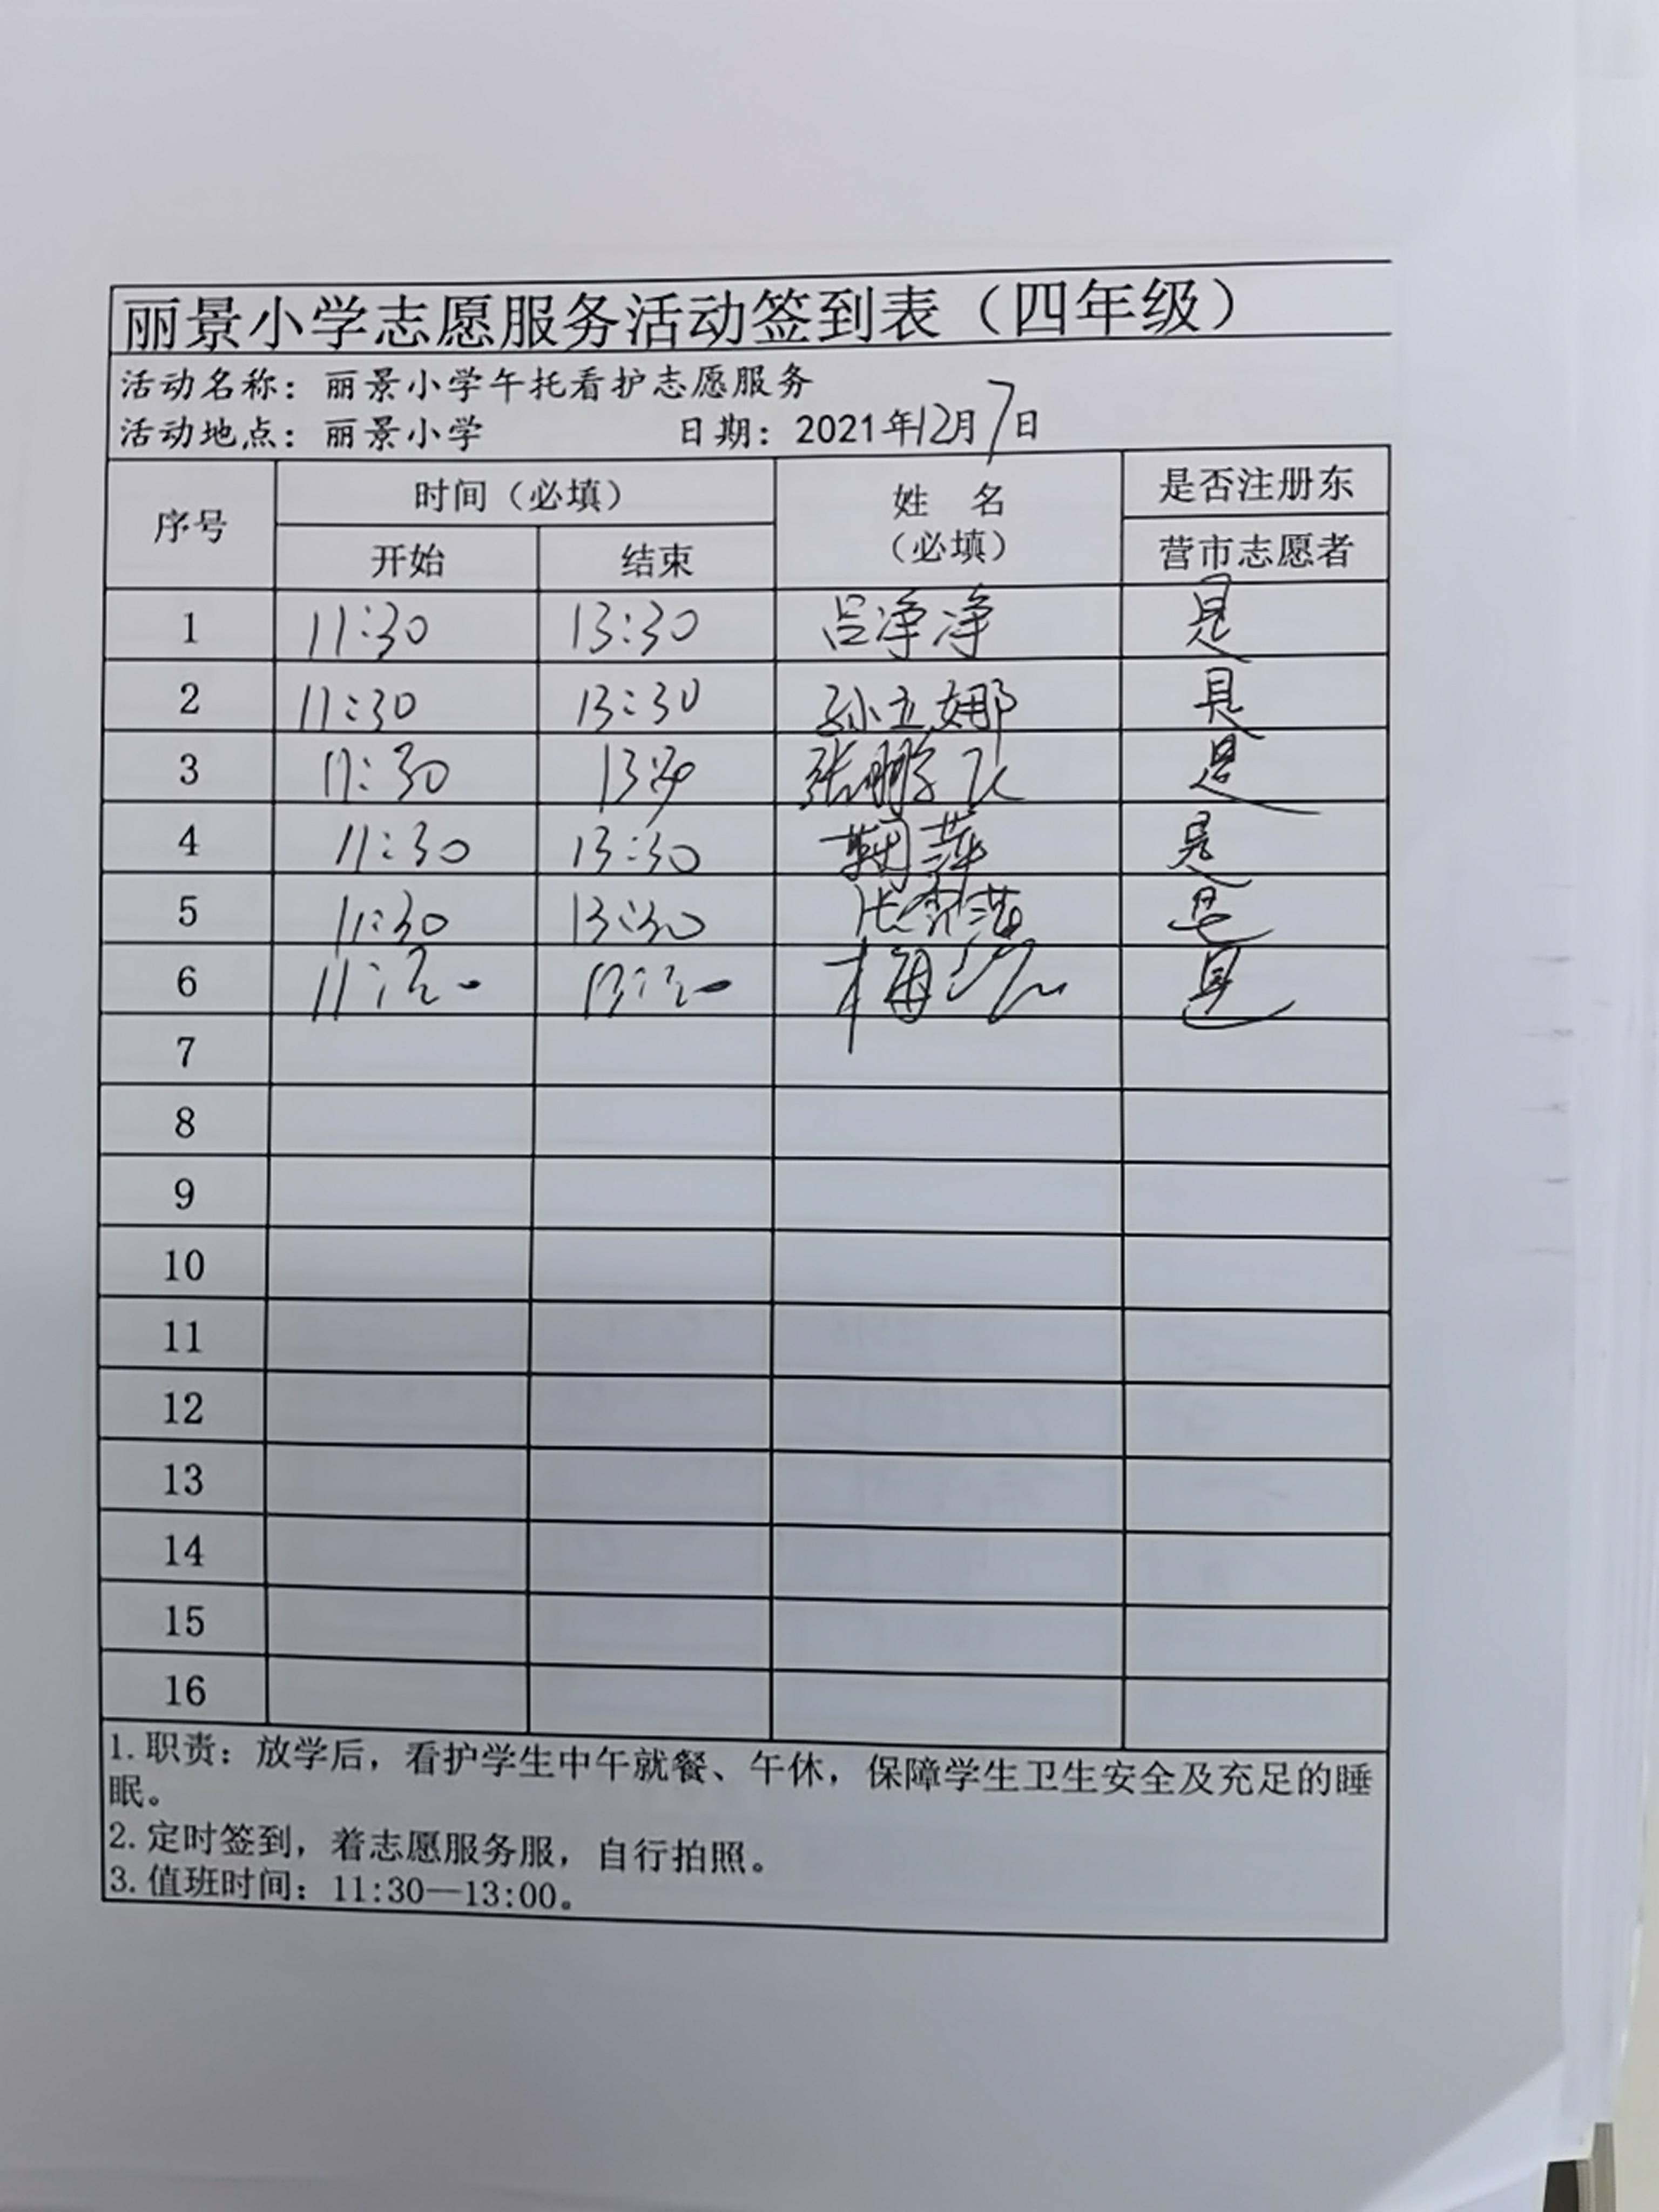 丽景小学志愿服务活动签到表（四年级）
活动名称：丽景小学午托看护志愿服务
活动地点：丽景小学 日期：2021年12月7日
序号 时间（必填） 姓 名（必填） 是否注册东营市志愿者
开始 结束
1 11:30 13:30 吕净净 是
2 11:30 13:30 孙立娜 是
3 11:30 13:30 张鹏飞 是
4 11:30 13:30 鞠萍 是
5 11:30 13:30 张 是
6 11:30 13:30 梅 是
7
8
9
10
11
12
13
14
15
16
1.职责：放学后，看护学生中午就餐、午休，保障学生卫生安全及充足的睡
眠。
2.定时签到，着志愿服务服，自行拍照。
3.值班时间：11:30—13:00。